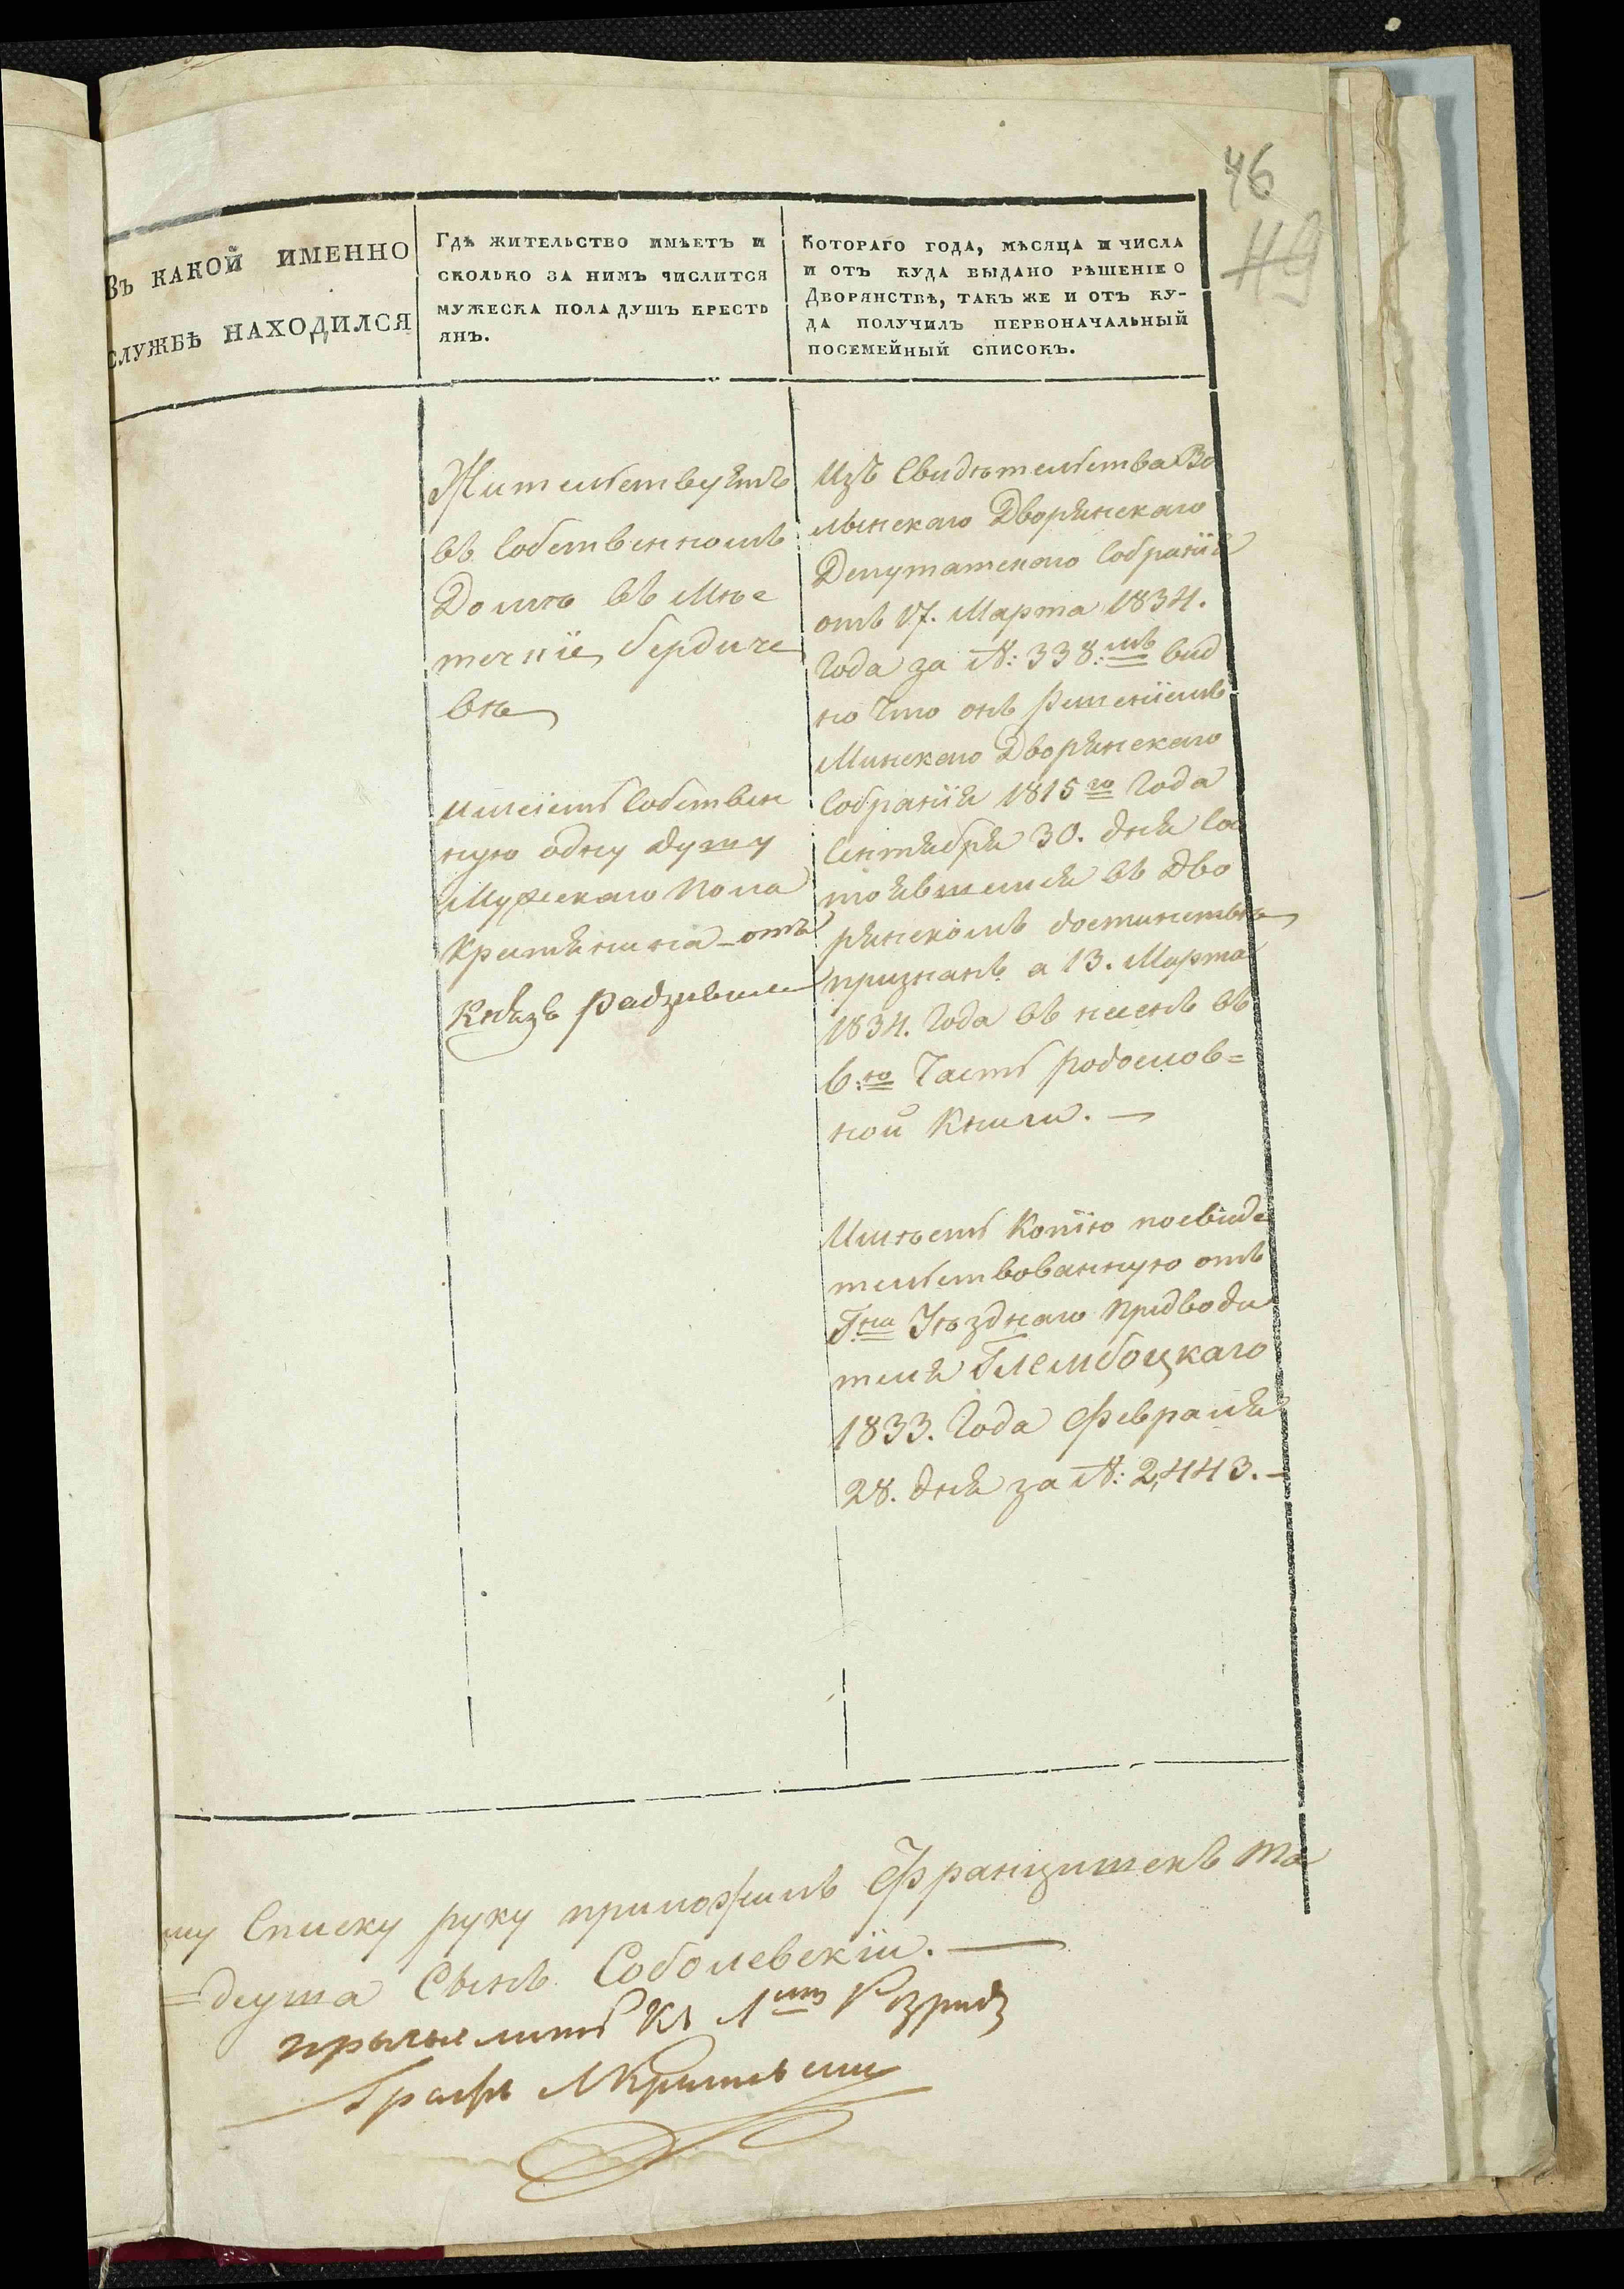 46
49
Въ какой именно
службѣ находился
Гдѣ жительство имѣетъ и
сколько за нимъ числится
мужеска пола душъ кресть
янъ.
Котораго года, мѣсяца и числа
и отъ куда выдано рѣшеніе о
Дворянствѣ, такъ же и отъ ку-
да получилъ первоначальный
посемейный списокъ.
Жительствуятъ
въ собственномъ
Домѣ въ Мѣс
течкіе, бердиче
вѣ
имеіетъ собствен
ную одну душу
Мужескаго пола
Кретянина отъ
Князъ Радзивил
Изъ Свидѣтельства Во
лынскаго Дворянскаго
Депутатскаго Собранія
отъ 17. Марта 1834.
Года за №: 338:мъ вид
но что онъ решеніемъ
Минскаго Дворянскаго
Собранія 1815го Года
Сентября 30. дня сос
тоявшемся въ Дво
рянскомъ достинствѣ
признанъ а 13. Марта
1834. Года въ несенъ въ
6:ю Часть родослов=
ной Книги. —
Имѣетъ Копію посвиде
тельствованную отъ
Гна Уѣзднаго Предводи
теля Глембоцкаго
1833. Года Февраля
28. дня за №: 2,443. —
му Списку руку приложилъ Францишекъ Та
=деуша Сынъ Соболевскій. —
причислить къ 1му Розриду
Графъ